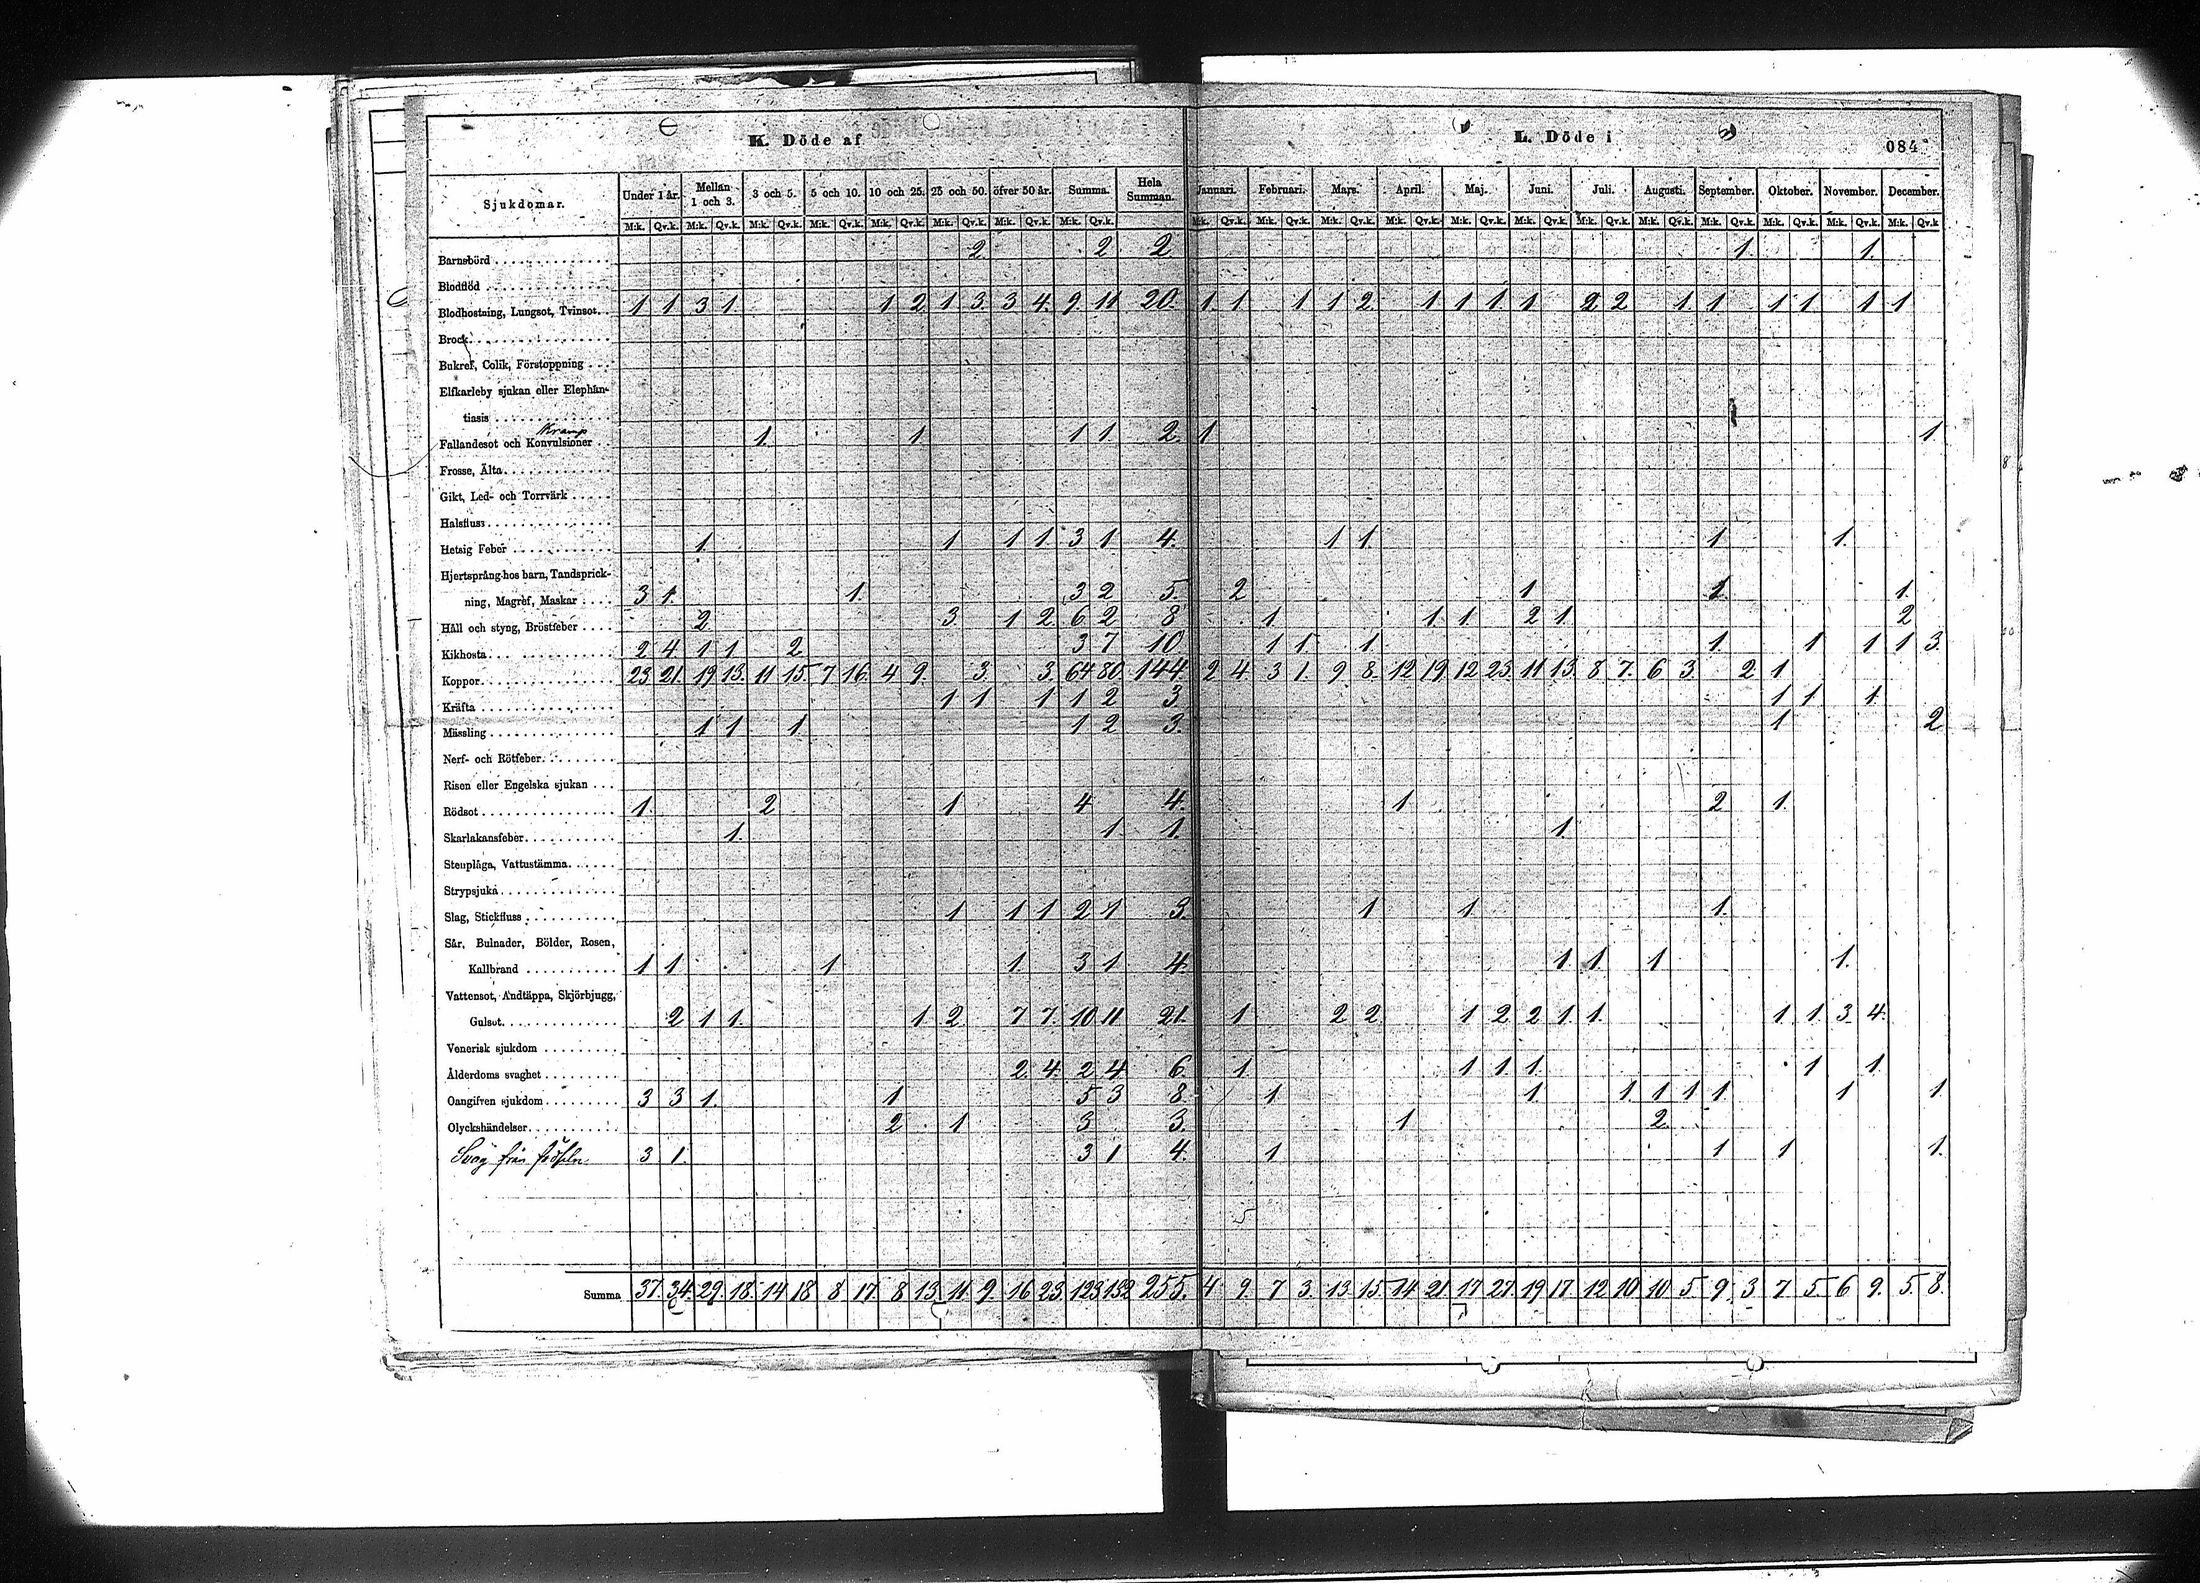 K. Döde af
L. Döde i
084
Sjukdomar. Under 1 år. Mellan 1 och 3. 3 och 5. 5 och 10. 10 och 25. 25 och 50. öfver 50 år. Summa. Hela Summan. Januari. Februari. Mars. April. Maj. Juni. Juli. Augusti. September. Oktober. November. December.
M:k. Qv.k. M:k. Qv.k. M:k. Qv.k. M:k. Qv.k. M:k. Qv.k. M:k. Qv.k. M:k. Qv.k. M:k. Qv.k. M:k. Qv.k. M:k. Qv.k. M:k. Qv.k. M:k. Qv.k. M:k. Qv.k. M:k. Qv.k. M:k. Qv.k. M:k. Qv.k. M:k. Qv.k. M:k. Qv.k. M:k. Qv.k. M:k. Qv.k
Barnsbörd 2 2 2 1 1
Blodflöd
Blodhostning, Lungsot, Tvinsot. 1 1 3 1 1 2 1 3 3 4 9 11 20 1 1 1 1 2 1 1 1 1 2 2 1 1 1 1 1 1
Brock
Bukref, Colik, Förstoppning
Elfkarleby sjukan eller Elephan-
tiasis
Kramp
Fallandesot och Konvulsioner 1 1 1 1 2 1 1
Frosse, Älta
Gikt, Led- och Torrvärk
Halsfluss
Hetsig Feber 1 1 1 1 3 1 4 1 1 1 1
Hjertsprång hos barn, Tandsprick-
ning, Magref, Maskar 3 1 1 3 2 5 2 1 1 1
Håll och styng, Bröstfeber 2 3 1 2 6 2 8 1 1 1 2 1 2
Kikhosta 2 4 1 1 2 3 7 10 1 1 1 1 1 1 1 3
Koppor 23 21 19 13 11 15 7 16 4 9 3 3 64 80 144 2 4 3 1 9 8 12 19 12 23 11 13 8 7 6 3 2 1
Kräfta 1 1 1 1 2 3 1 1 1
Mässling 1 1 1 1 2 3 1 2
Nerf- och Rötfeber
Risen eller Engelska sjukan
Rödsot 1 2 1 4 4 1 2 1
Skarlakansfeber 1 1 1 1
Stenplåga, Vattustämma
Strypsjuka
Slag, Stickfluss 1 1 1 2 1 3 1 1 1
Sår, Bulnader, Bölder, Rosen,
Kallbrand 1 1 1 1 3 1 4 1 1 1 1
Vattensot, Andtäppa, Skjörbjugg,
Gulsot 2 1 1 1 2 7 7 10 11 21 1 2 2 1 2 2 1 1 1 1 3 4
Venerisk sjukdom
Ålderdoms svaghet 2 4 2 4 6 1 1 1 1 1 1
Oangifven sjukdom 3 3 1 1 5 3 8 1 1 1 1 1 1 1 1
Olyckshändelser 2 1 3 3 1 2
Svag från födseln 3 1 3 1 4 1 1 1 1
5
Summa 37 34 29 18 14 18 8 17 8 13 11 9 16 23 123 132 255 4 9 7 3 13 15 14 21 17 27 19 17 12 10 10 5 9 3 7 5 6 9 5 8